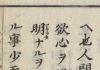 ヘ也人間
欲心ヲ
明ナルヲ
ル事少モ